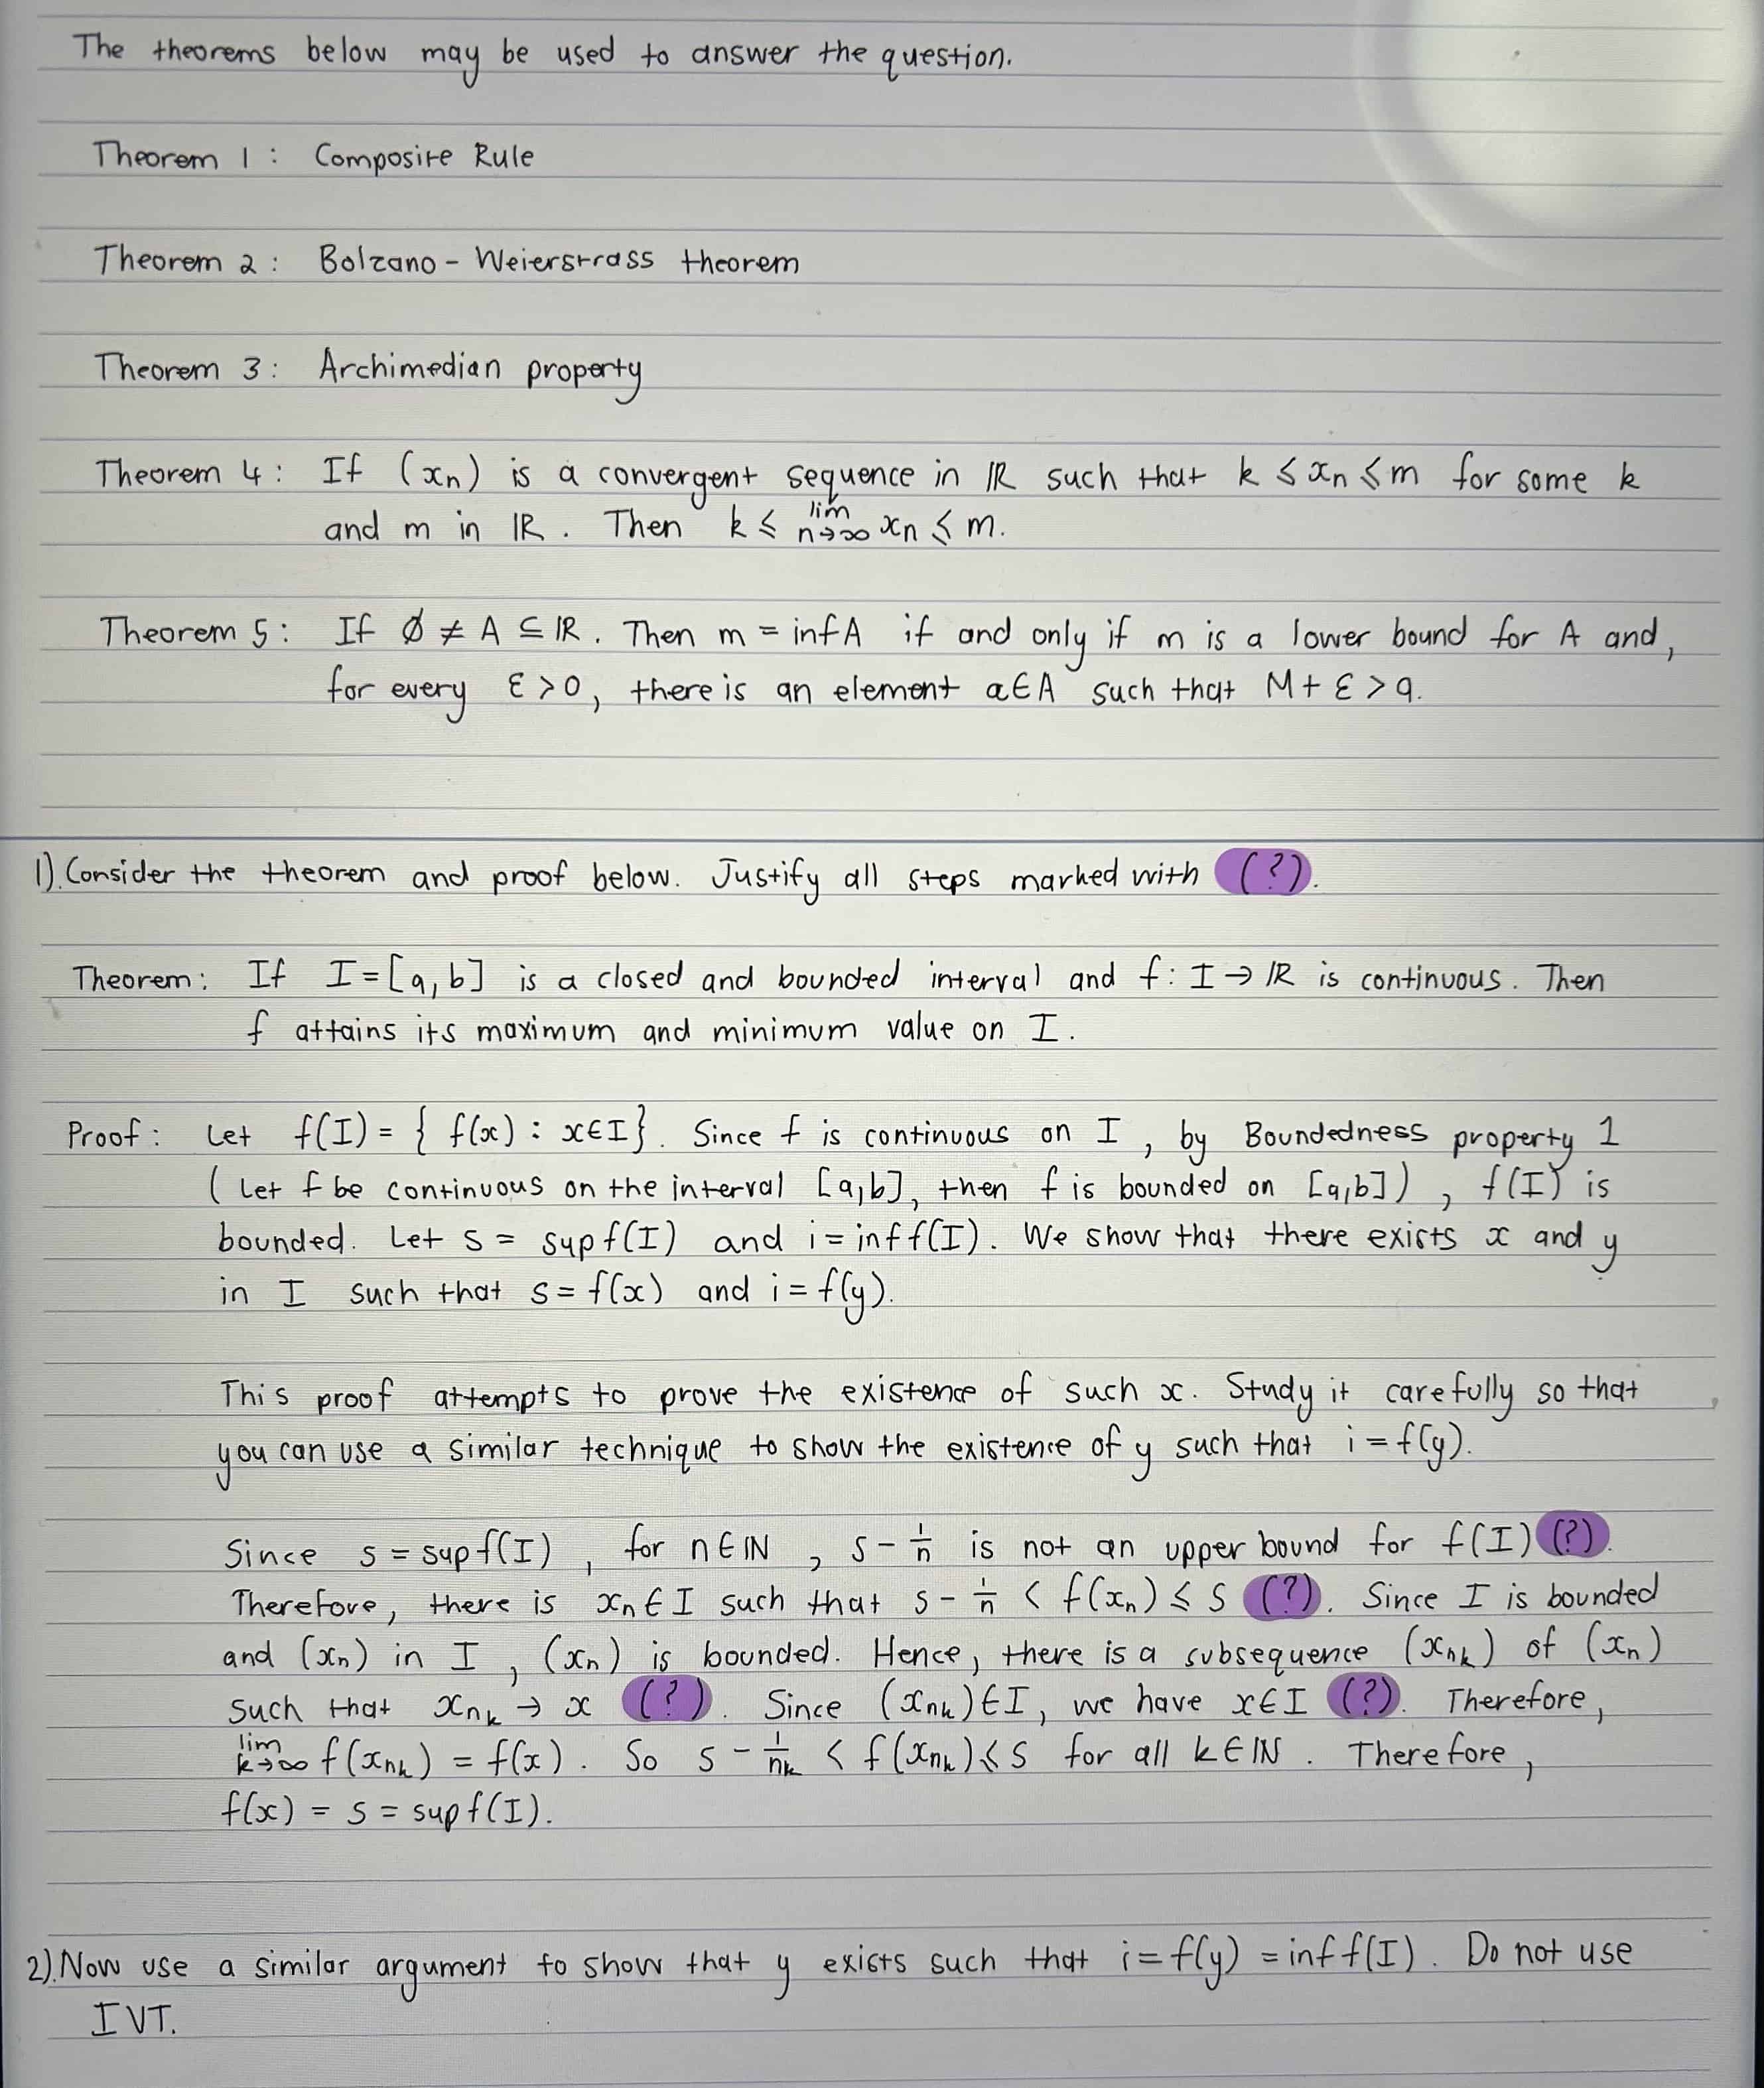 The theorems below may be used to answer the question.
Theorem 1 : Composite Rule
Theorem 2 : Bolzano - Weierstrass theorem
Theorem 3 : Archimedian property
Theorem 4 : If (xn) is a convergent sequence in ℝ such that k ≤ xn ≤ m for some k
and m in ℝ . Then k ≤ lim n→∞ xn ≤ m.
Theorem 5 : If ∅ ≠ A ⊆ ℝ . Then m = inf A if and only if m is a lower bound for A and,
for every ε > 0 , there is an element a ∈ A such that M + ε > a.
1). Consider the theorem and proof below. Justify all steps marked with (?).
Theorem : If I = [a, b] is a closed and bounded interval and f : I → ℝ is continuous. Then
f attains its maximum and minimum value on I.
Proof : Let f(I) = { f(x) : x ∈ I}. Since f is continuous on I , by Boundedness property 1
( Let f be continuous on the interval [a,b], then f is bounded on [a,b]) , f(I) is
bounded. Let s = sup f(I) and i = inf f(I). We show that there exists x and y
in I such that s = f(x) and i = f(y).
This proof attempts to prove the existence of such x. Study it carefully so that
you can use a similar technique to show the existence of y such that i = f(y).
Since s = sup f(I) , for n ∈ ℕ , s - 1/n is not an upper bound for f(I) (?).
Therefore, there is xn ∈ I such that s - 1/n < f(xn) ≤ s (?). Since I is bounded
and (xn) in I , (xn) is bounded. Hence, there is a subsequence (xnk) of (xn)
such that xnk → x (?). Since (xnk) ∈ I, we have x ∈ I (?). Therefore,
lim k→∞ f(xnk) = f(x) . So s - 1/nk < f(xnk) ≤ s for all k ∈ ℕ . Therefore,
f(x) = s = sup f(I).
2). Now use a similar argument to show that y exists such that i = f(y) = inf f(I). Do not use
IVT.